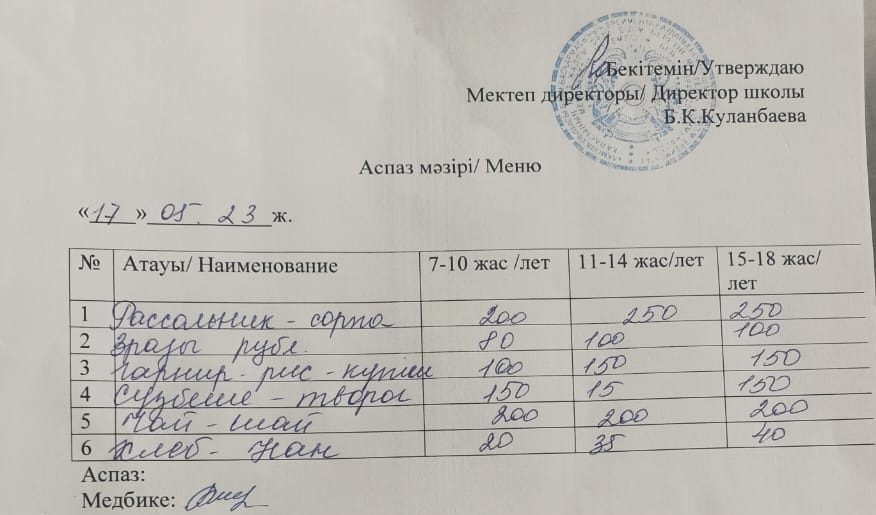 Бекітемін/Утверждаю
Мектеп директоры/ Директор школы
Б.К.Куланбаева
Аспаз мәзірі/ Меню
«17» 05. 23 ж.
№ Атауы/ Наименование 7-10 жас /лет 11-14 жас/лет 15-18 жас/
лет
1 Рассольник - сорпа 200 250 250
2 Зразы рубл. 80 100 100
3 гарнир - рис - күріш 100 150 150
4 Сүзбеше - творог 150 15 150
5 Чай - шай 200 200 200
6 Хлеб - Нан 20 35 40
Аспаз:
Медбике: